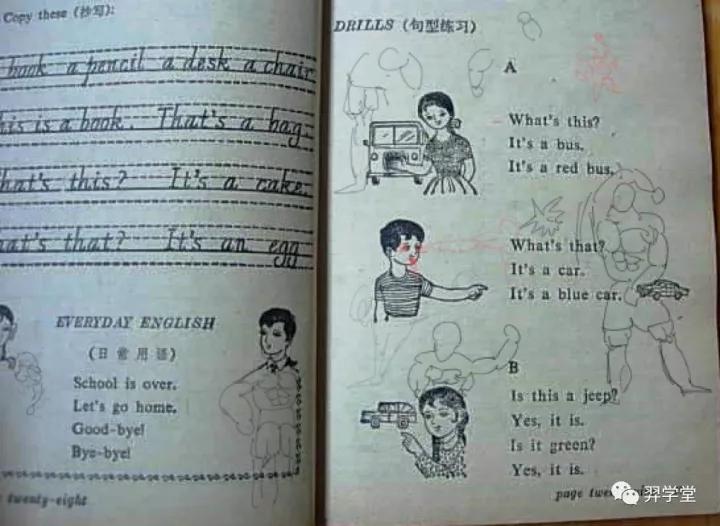 Copy these (抄写):
book a pencil a desk a chair
is is a book. That's a bag.
hat's this? It's a cake.
at's that? It's an egg
EVERYDAY ENGLISH
(日常用语)
School is over.
Let's go home.
Good-bye!
Bye-bye!
twenty-eight
DRILLS (句型练习)
A
What's this?
It's a bus.
It's a red bus.
What's that?
It's a car.
It's a blue car.
B
Is this a jeep?
Yes, it is.
Is it green?
Yes, it is.
page
羿学堂